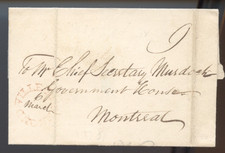 9
To Mr Chief Secretary Murdoch
Government House
Montreal
6
March